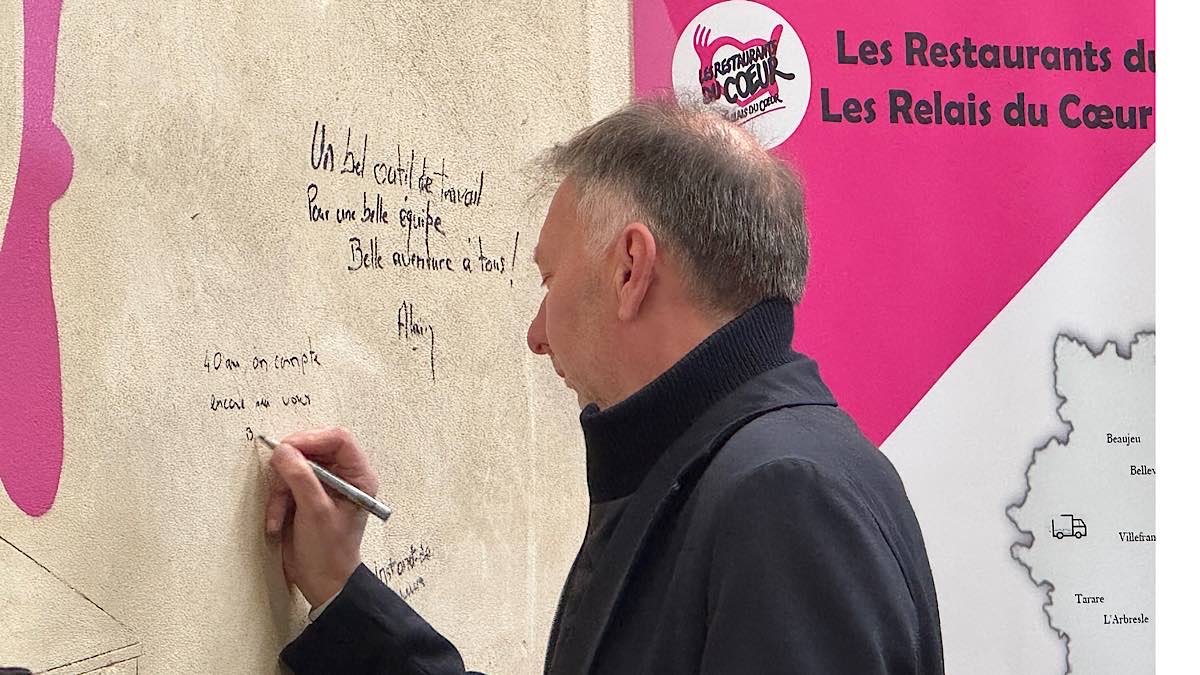 Les Restaurants du
Les Relais du Cœur
LES RESTAURANTS
DU COEUR
RELAIS DU COEUR
Un bel outil de travail
Pour une belle équipe
Belle aventure à tous !
Alain
40 ans on compte
encore vous
B
Beaujeu
Bellev
Villefran
Tarare
L'Arbresle